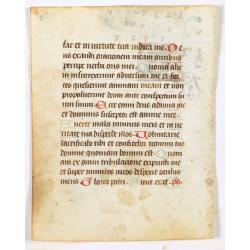 fac et in virtute tua iudica me. De
us exaudi orationem meam auribus
percipe verba oris mei. Quoniā alie
ni insurrexerunt adversum me et for
tes quesierunt animam meam et non
proposuerunt deum ante conspectum su
um Ecce enim deus adiuva me
et dominus susceptor est anime mee
Averte mala inimicis meis et in ve
ritate tua disperde illos. Voluntarie
sacrificabo tibi et confitebor nomini tuo
domine quoniam bonum est Quoniam
ex omni tribulatione eripuisti me
et super inimicos meos despexit oculus
meus Gloria patri. Sicut erat. ps.